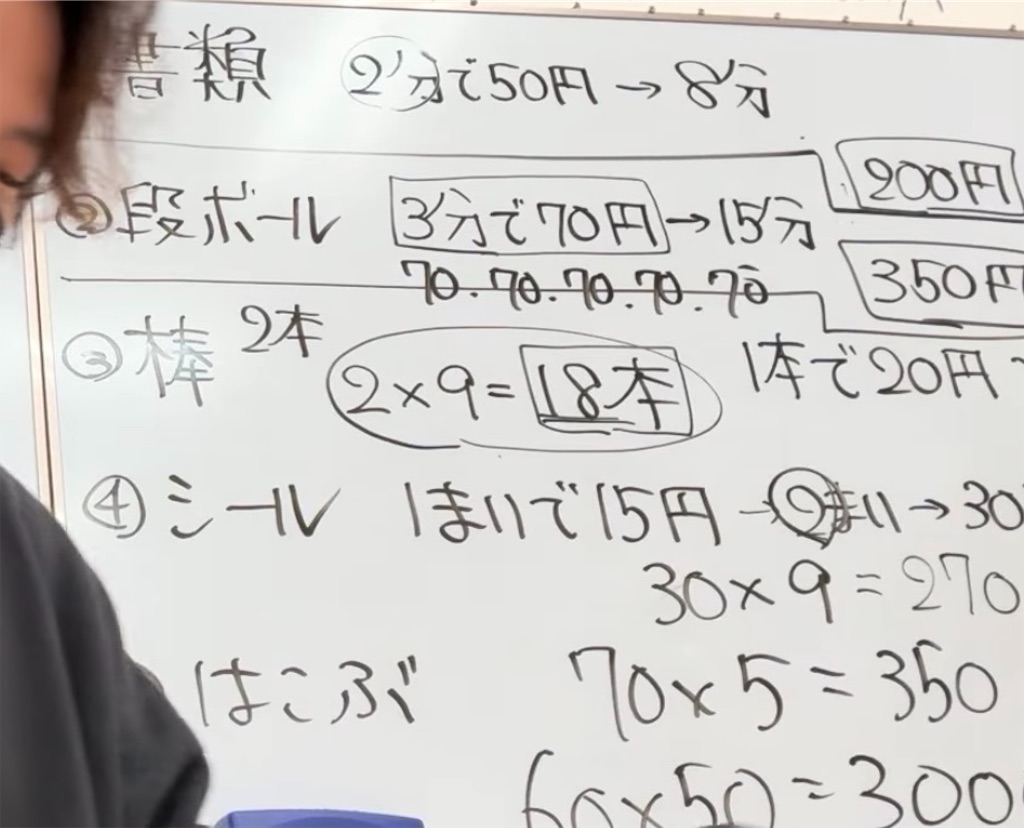 書類 2分で50円→8分
200円
②段ボール 3分で70円→15分
70.70.70.70.70
350円
③棒 2本 2×9=18本 1本で20円
④シール 1まいで15円→2まい→30
30×9=270
はこぶ 70×5=350
60×50=300